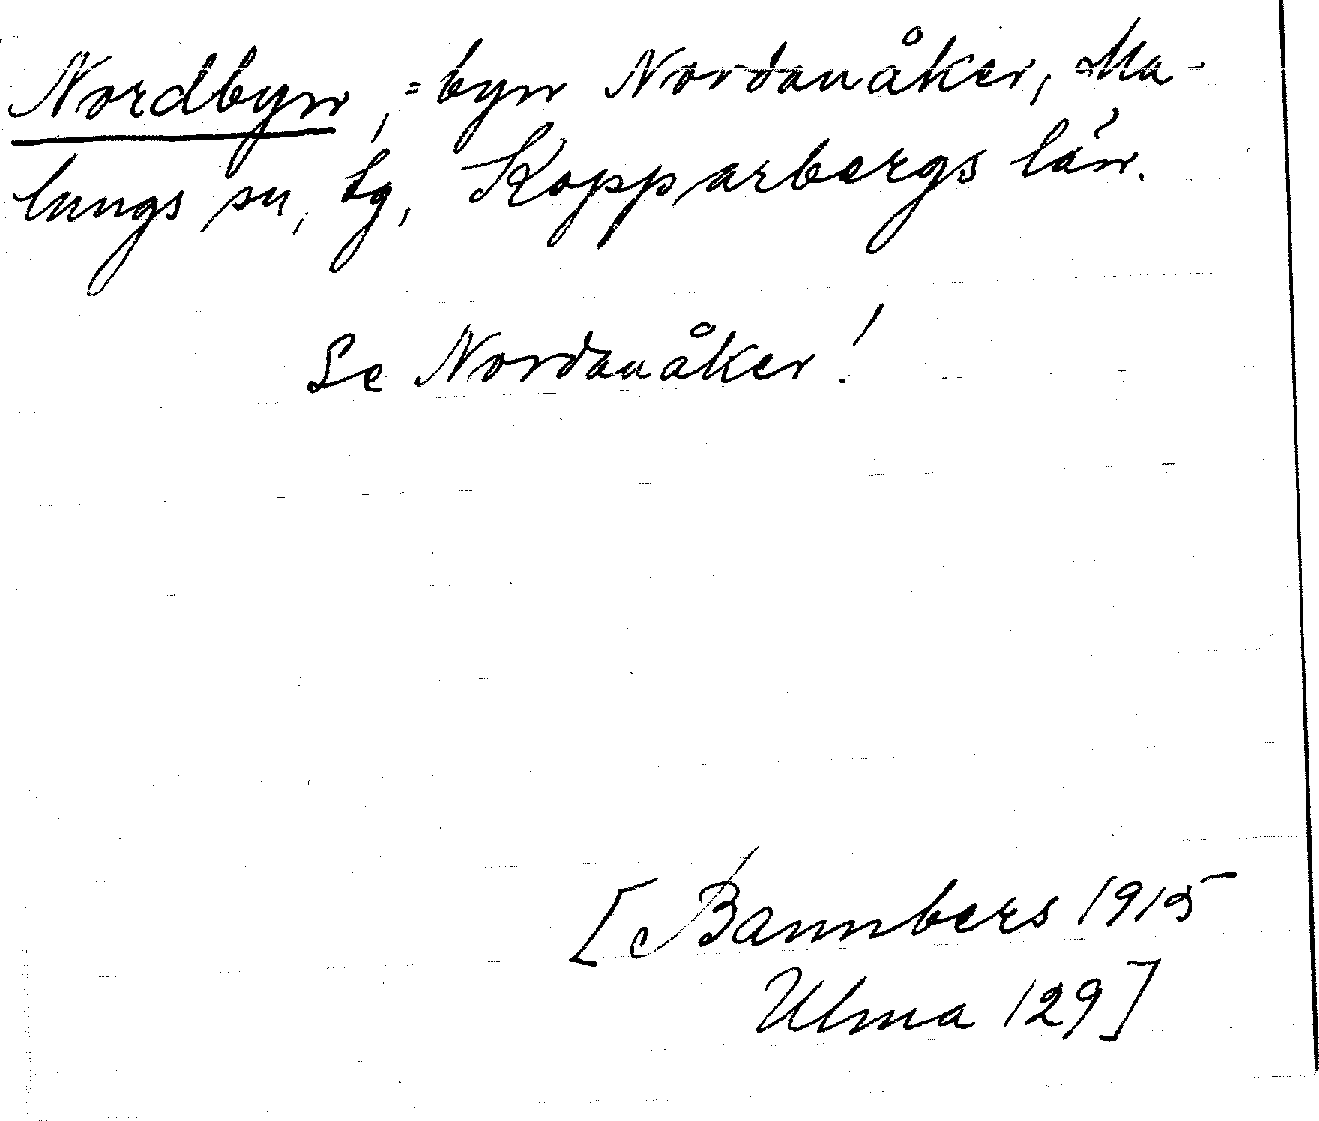 Nordbyn, = byn Nordanåker, Ma-
lungs sn, lg, Kopparbergs län.
Se Nordanåker!
[Bannbers 1915
Ulma 129]